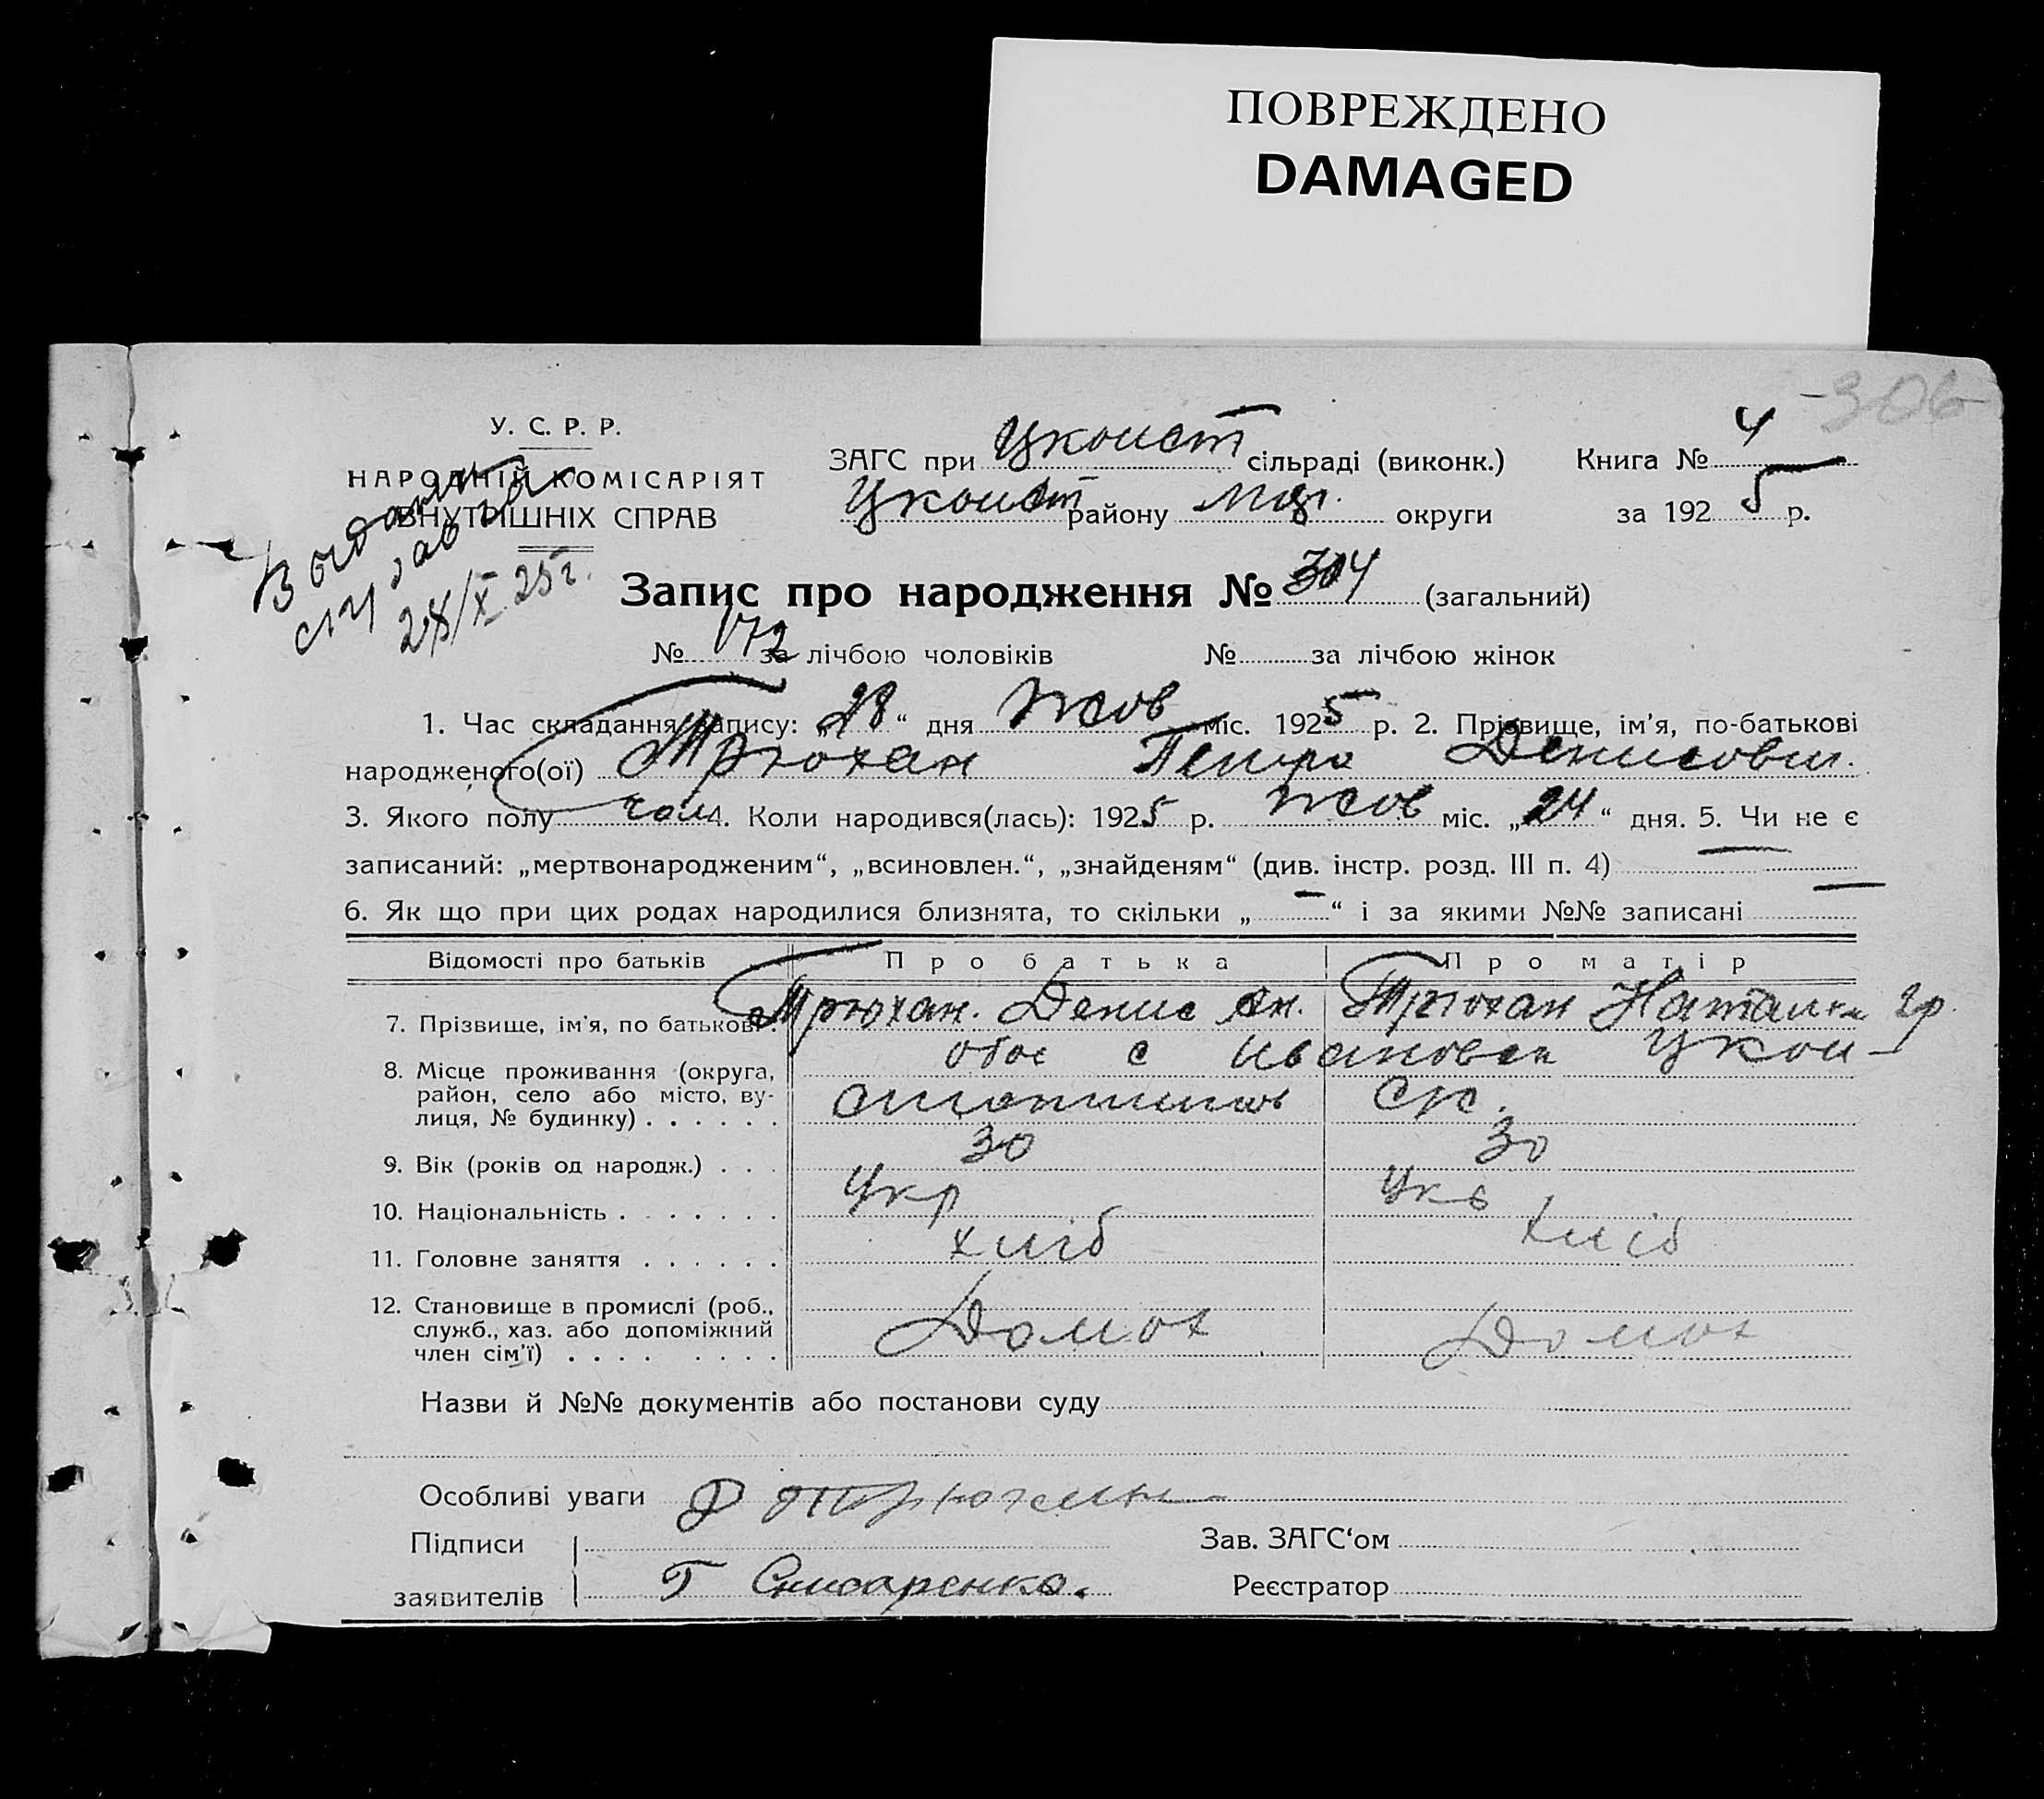 ПОВРЕЖДЕНО
DAMAGED
306
У. С. Р. Р.
НАРОДНІЙ КОМІСАРІЯТ
ВНУТРІШНІХ СПРАВ
28/X 25г.
ЗАГС при Уконст сільраді (виконк.) Книга № 4
Уконст району округи за 1925 р.
Запис про народження № 304 (загальний)
№ 172 за лічбою чоловіків № за лічбою жінок
1. Час складання запису: „28“ дня Жов міс. 1925 р. 2. Прізвище, ім'я, по-батькові
народженого(ої) Трюхан Петро Денисович
3. Якого полу чол 4. Коли народився(лась): 1925 р. Жов міс. „24“ дня. 5. Чи не є
записаний: „мертвонародженим“, „всиновлен.“, „знайденям“ (див. інстр. розд. III п. 4) —
6. Як що при цих родах народилися близнята, то скільки „—“ і за якими №№ записані —
Відомості про батьків Про батька Про матір
7. Прізвище, ім'я, по батькові. Трюхан. Денис Ан. Трюхан Наталка Гр.
8. Місце проживання (округа, район, село або місто, вулиця, № будинку) . . . . . . обоє с Ивановка
9. Вік (років од народж.) . . . 30 30
10. Національність . . . . . . . Укр Укр
11. Головне заняття . . . . . . хліб хліб
12. Становище в промислі (роб., служб., хаз. або допоміжний член сім'ї) . . . . . . . . Домох Домох
Назви й №№ документів або постанови суду
Особливі уваги
Підписи Зав. ЗАГС‘ом
заявителів Г Снисаренко. Реєстратор